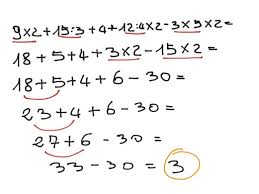 9×2+15:3+4+12:4×2-3×5×2=
18+5+4+3×2-15×2=
18+5+4+6-30=
23+4+6-30=
27+6-30=
33-30=3